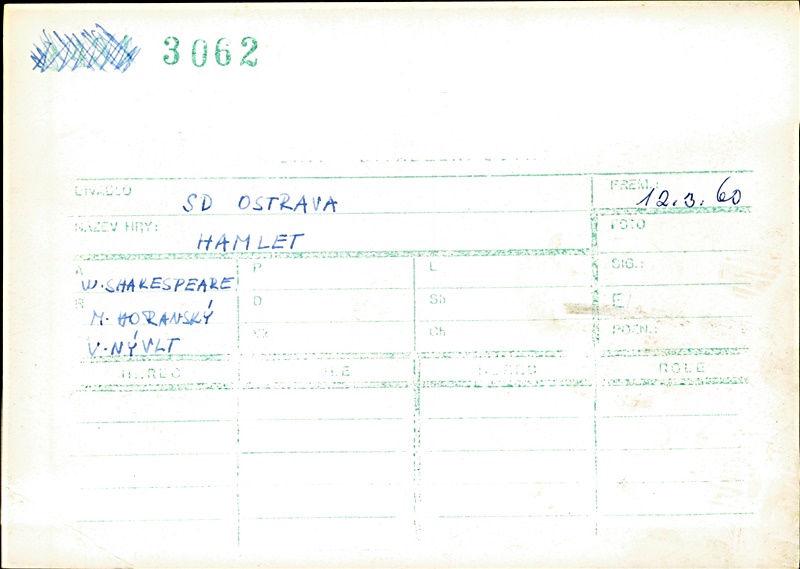 3062
DIVADLO SD OSTRAVA PREM.: 12.3.60
NÁZEV HRY: HAMLET FOTO
A W. SHAKESPEARE P L SIG.:
R M. HORANSKÝ D Sh E
V. NÝVLT Vk Ch POZN.:
HEREC ROLE HEREC ROLE